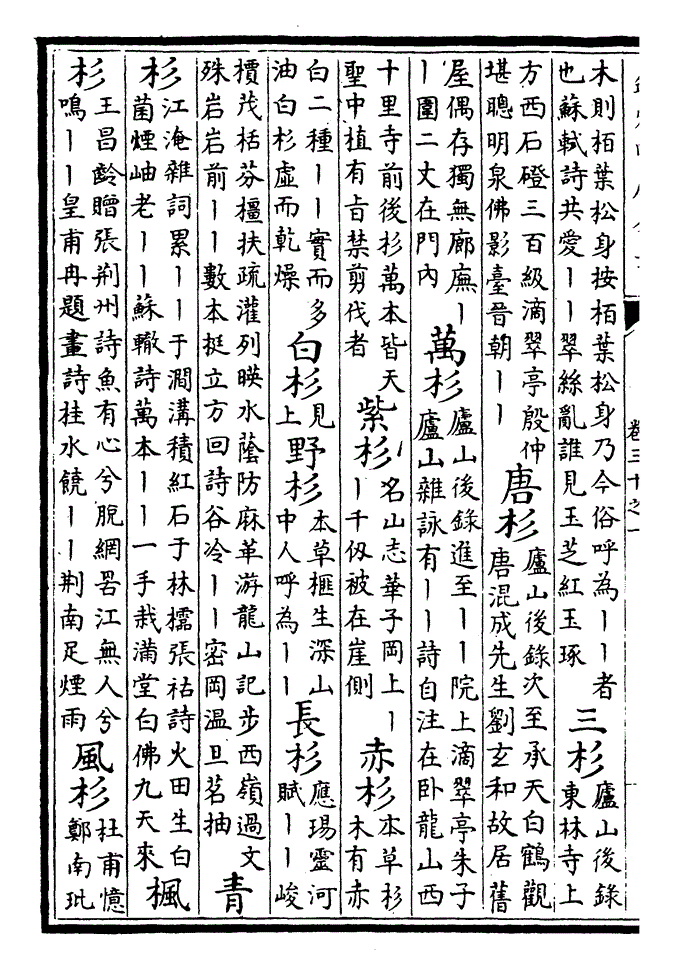 卷三十之一
木則栢葉松身按栢葉松身乃今俗呼為丨丨者
也蘇軾詩共愛丨丨翠絲亂誰見玉芝紅玉琢
三杉
廬山後錄
東林寺上
方西石磴三百級滴翠亭殷仲
堪聰明泉佛影臺晉朝丨丨
唐杉
廬山後錄次至承天白鶴觀
唐混成先生劉玄和故居舊
屋偶存獨無廊廡丨
丨圍二丈在門內
萬杉
廬山後錄進至丨丨院上滴翠亭朱子
廬山雜詠有丨丨詩自注在卧龍山西
十里寺前後杉萬本皆天
聖中植有旨禁剪伐者
紫杉
名山志華子岡上丨
丨千仭被在崖側
赤杉
本草杉
木有赤
白二種丨丨實而多
油白杉虛而乾燥
白杉
見
上
野杉
本草榧生深山
中人呼為丨丨
長杉
應瑒靈河
賦丨丨峻
檟茂栝芬橿扶疏灌列暎水蔭防麻革游龍山記步西嶺過文
殊岩岩前丨丨數本挺立方回詩谷冷丨丨密岡溫旦茗抽
青
杉
江淹雜詞累丨丨于澗溝積紅石于林檽張祜詩火田生白
菌煙岫老丨丨蘇轍詩萬本丨丨一手栽滿堂白佛九天來
楓
杉
王昌齡贈張荆州詩魚有心兮脫網罟江無人兮
鳴丨丨皇甫冉題畫詩桂水饒丨丨荆南足煙雨
風杉
杜甫憶
鄭南玼